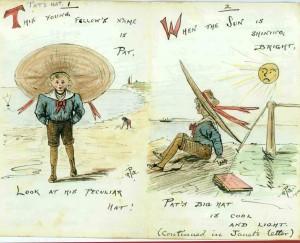 Pat's Hat. 1
This young fellow's name
is
Pat,
Look at his peculiar
Hat!
2
When the Sun is
shining,
bright,
Pat's big hat
is cool
and light.
(Continued in Janet's letter)